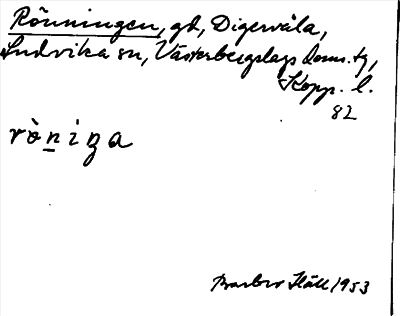 Rönningen, gd, Digervåla,
Ludvika sn, Västerbergslags doms. tg,
Kopp. l.
82
rò̱niŋa
Barbro Häll 1953